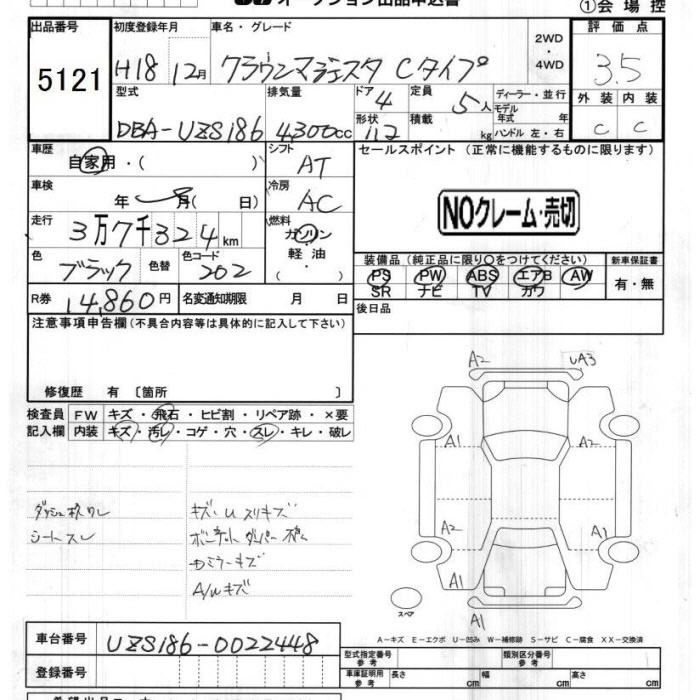 オークション出品申込書
①会場控
出品番号
5121
初度登録年月
H18 12月
車名・グレード
クラウンマジェスタ Cタイプ
2WD
・
4WD
評価点
3.5
外装 内装
C C
型式
DBA-UZS186
排気量
4300cc
ドア
4
形状
定員
5人
積載
kg
ディーラー・並行
モデル
年式 年
ハンドル 左・右
車歴
自家用・( )
シフト
AT
車検
年 月( 日)
冷房
AC
走行
3万7千324km
燃料
ガソリン
軽油
・( )
色
ブラック
色替
色コード
202
R券
14,860円
名変通知期限 月 日
セールスポイント(正常に機能するものに限ります)
NOクレーム・売切
装備品(純正品に限り○をつけてください)
PS PW ABS エアB AW
SR ナビ TV カワ
新車保証書
有・無
後日品
注意事項申告欄(不具合内容等は具体的に記入して下さい)
修復歴 有〔箇所 〕
検査員
記入欄
FW キズ・飛石・ヒビ割・リペア跡・×要
内装 キズ・汚レ・コゲ・穴・スレ・キレ・破レ
シートスレ
キズ・Uスリキズ
ドミラーキズ
A/Wキズ
A2
UA3
A1
A2
A2
A1
A1
A1
A1
スペア
A-キズ E-エクボ U-凹み W-補修跡 S-サビ C-腐食 XX-交換済
車台番号
UZS186-0022448
登録番号
型式指定番号
参考
類別区分番号
参考
車庫証明用
参考
長さ cm
幅 cm
高さ cm